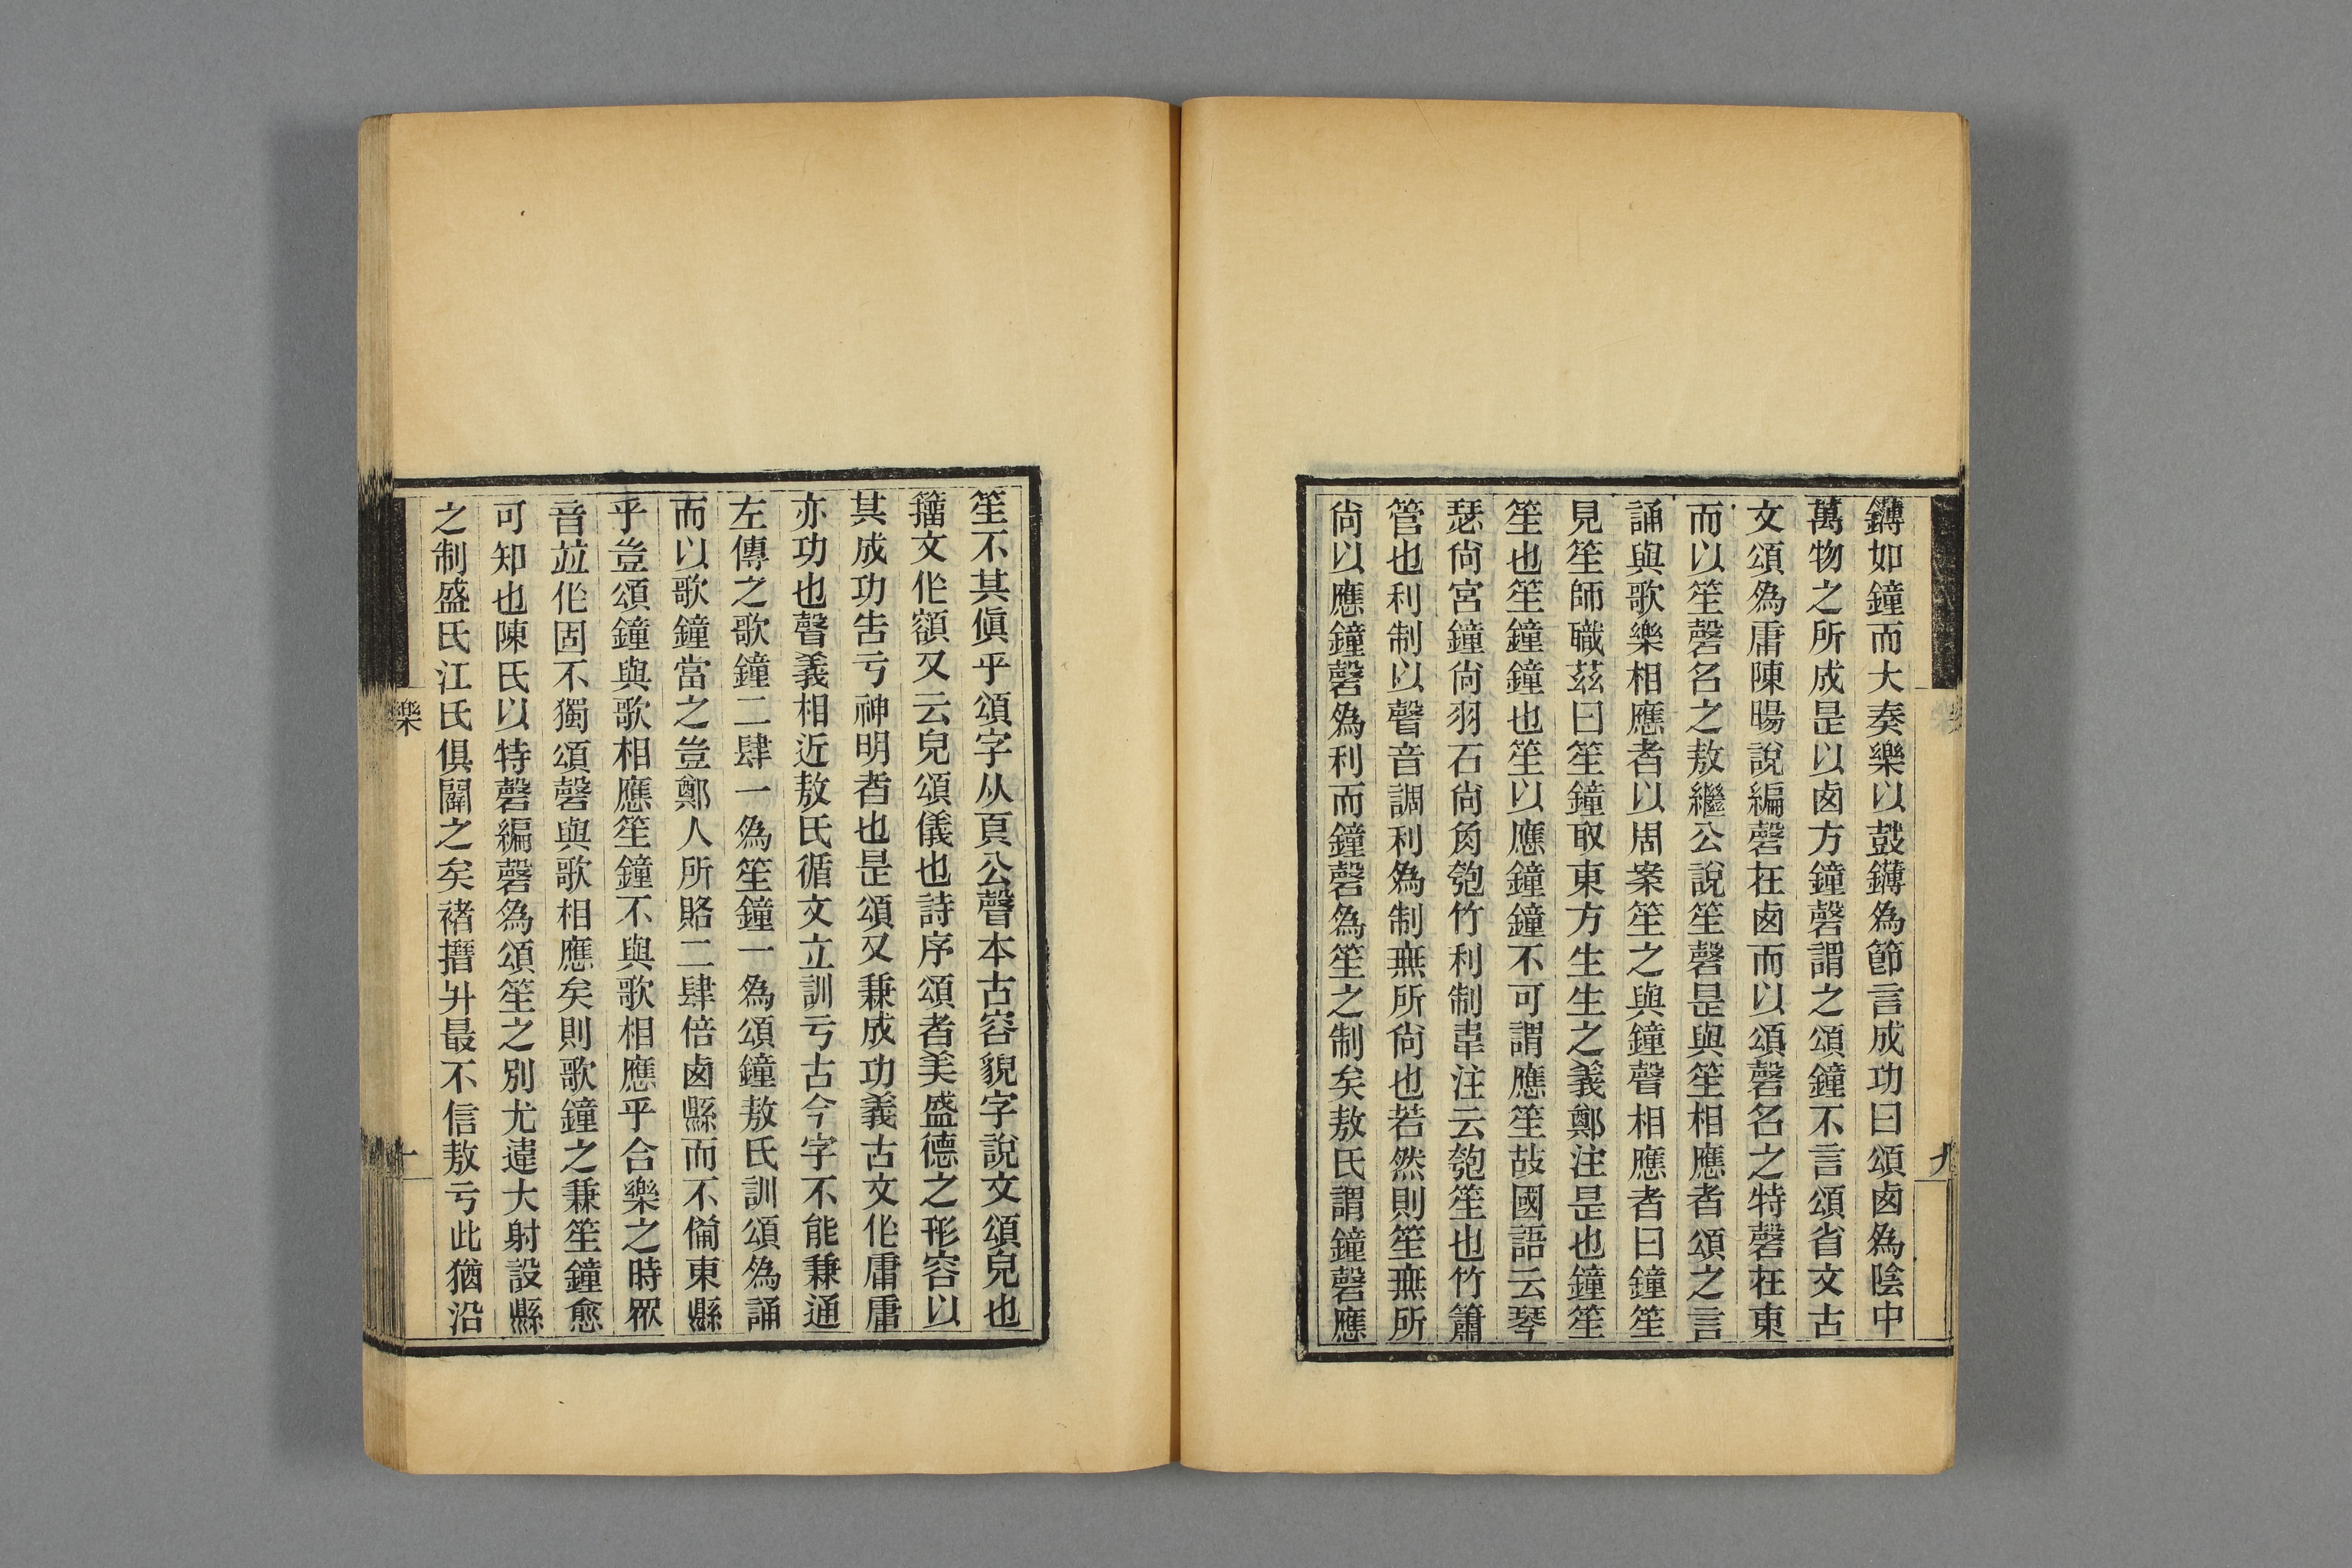 鑮如鐘而大奏樂以鼓鑮為節言成功曰頌卤為陰中
萬物之所成是以卤方鐘磬謂之頌鐘不言頌省文古
文頌為庸陳暘說編磬在卤而以頌磬名之特磬在東
而以笙磬名之敖繼公說笙磬是與笙相應者頌之言
誦與歌樂相應者以周案笙之與鐘聲相應者曰鐘笙
見笙師職茲曰笙鐘取東方生生之義鄭注是也鐘笙
笙也笙鐘鐘也笙以應鐘鐘不可謂應笙故國語云琴
瑟尙宮鐘尙羽石尙角匏竹利制韋注云匏笙也竹簫
管也利制以聲音調利為制無所尙也若然則笙無所
尙以應鐘磬為利而鐘磬為笙之制矣敖氏謂鐘磬應
樂
九
笙不其傎乎頌字从頁公聲本古容貌字說文頌皃也
籒文作額又云皃頌儀也詩序頌者美盛德之形容以
其成功告亏神明者也是頌又兼成功義古文作庸庸
亦功也聲義相近敖氏循文立訓亏古今字不能兼通
左傳之歌鐘二肆一為笙鐘一為頌鐘敖氏訓頌為誦
而以歌鐘當之豈鄭人所賂二肆倍卤縣而不備東縣
乎豈頌鐘與歌相應笙鐘不與歌相應乎合樂之時眾
音竝作固不獨頌磬與歌相應矣則歌鐘之兼笙鐘愈
可知也陳氏以特磬編磬為頌笙之別尤違大射設縣
之制盛氏江氏俱闢之矣褚搢升最不信敖亏此猶沿
樂
十